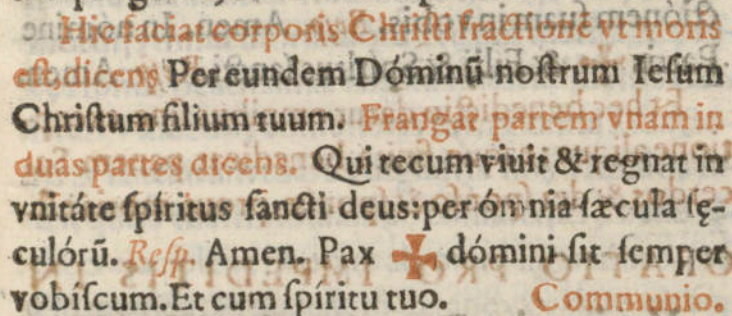 Hic faciat corporis Chriſti fractionē vt moris
eſt, dicens Per eundem Dóminū noſtrum Ieſum
Chriſtum filium tuum. Frangat partem vnam in
duas partes dicens. Qui tecum viuit & regnat in
vnitáte ſpíritus ſancti deus: per ómnia ſæcula ſę-
culórū. Reſp. Amen. Pax ✠ dómini ſit ſemper
vobíſcum. Et cum ſpíritu tuo. Communio.